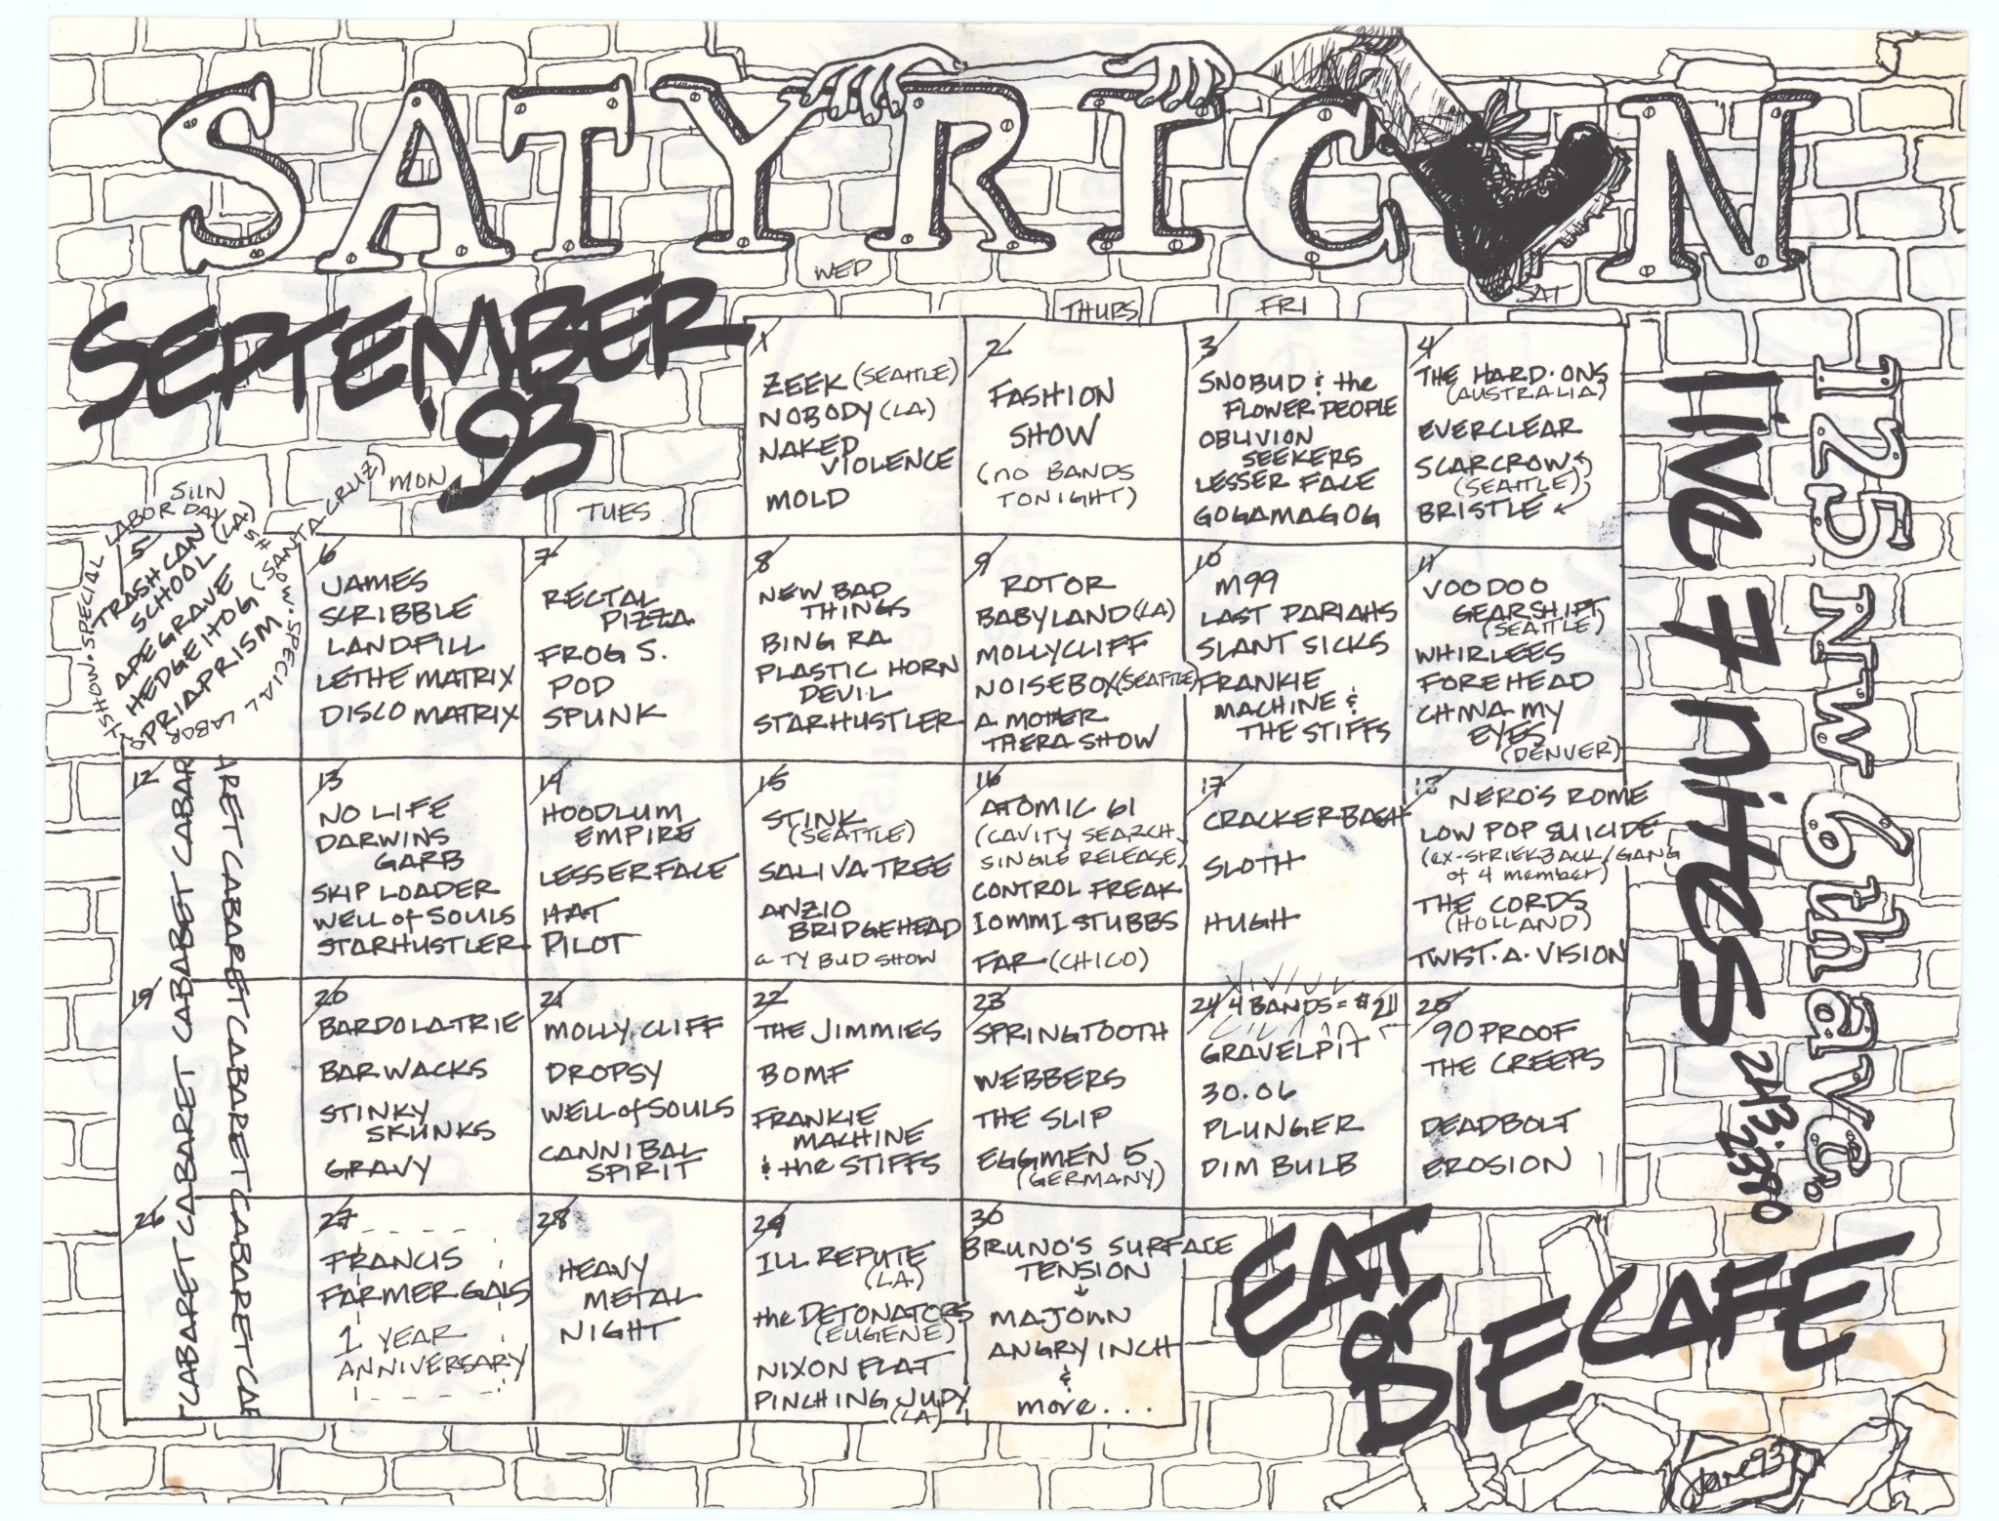 SATYRICON
SEPTEMBER
93
125 NW 6th ave.
LIVE 7 NiTES
243.2380
SUN
MON
TUES
WED
THURS
FRI
SAT
1
ZEEK (SEATTLE)
NOBODY (LA)
NAKED
VIOLENCE
MOLD
2
FASHION
SHOW
(NO BANDS
TONIGHT)
3
SNOBUD & the
FLOWER PEOPLE
OBLIVION
SEEKERS
LESSER FACE
GOGAMAGOG
4
THE HARD·ONS
(AUSTRALIA)
EVERCLEAR
SCARCROW
(SEATTLE)
BRISTLE
SPECIAL LABOR DAY SHOW·SPECIAL LABOR DAY SHOW·
5
TRASHCAN
SCHOOL (LA)
APEGRAVE
HEDGEHOG (SANTA CRUZ)
PRIAPRISM
6
JAMES
SCRIBBLE
LANDFILL
LETHE MATRIX
DISCO MATRIX
7
RECTAL
PIZZA
FROG S.
POD
SPUNK
8
NEW BAD
THINGS
BING RA
PLASTIC HORN
DEVIL
STARHUSTLER
9
ROTOR
BABYLAND (LA)
MOLLYCLIFF
NOISEBOX (SEATTLE)
A MOTHER
THERA SHOW
10
M99
LAST PARIAHS
SLANT SICKS
FRANKIE
MACHINE &
THE STIFFS
11
VOODOO
GEARSHIFT
(SEATTLE)
WHIRLEES
FOREHEAD
CHINA MY
EYES
(DENVER)
12
CABARET CABARET CABARET CABARET CABARET
CABARET CABARET CABARET CABARET CABARET
13
NO LIFE
DARWINS
GARB
SKIP LOADER
WELL of SOULS
STARHUSTLER
14
HOODLUM
EMPIRE
LESSER FACE
HAT
PILOT
15
STINK
(SEATTLE)
SALIVA TREE
ANZIO
BRIDGEHEAD
a TY BUD SHOW
16
ATOMIC 61
(CAVITY SEARCH
SINGLE RELEASE)
CONTROL FREAK
IOMMI STUBBS
FAR (CHICO)
17
CRACKERBASH
SLOTH
HUGH
18
NERO'S ROME
LOW POP SUICIDE
(ex-SHRIEKBACK/GANG
of 4 member)
THE CORDS
(HOLLAND)
TWIST·A·VISION
19
20
BARDOLATRIE
BARWACKS
STINKY
SKUNKS
GRAVY
21
MOLLY CLIFF
DROPSY
WELL of SOULS
CANNIBAL
SPIRIT
22
THE JIMMIES
BOMF
FRANKIE
MACHINE
& the STIFFS
23
SPRINGTOOTH
WEBBERS
THE SLIP
EGGMEN 5
(GERMANY)
24
4 BANDS = $2!!
GRAVELPIT
30.06
PLUNGER
DIM BULB
25
90 PROOF
THE CREEPS
DEADBOLT
EROSION
26
27
FRANCIS
FARMER GALS
1 YEAR
ANNIVERSARY
28
HEAVY
METAL
NIGHT
29
ILL REPUTE
(LA)
the DETONATORS
(EUGENE)
NIXON FLAT
PINCHING JUDY
(LA)
30
BRUNO'S SURFACE
TENSION
MAJOWN
ANGRY INCH
&
more...
EAT
or
DIE CAFE
Jane 93